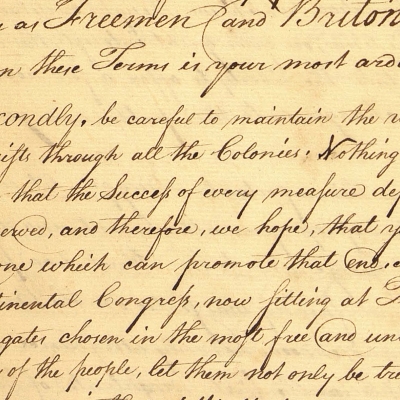 as Freemen and Briton
n these Terms is your most ard
condly, be careful to maintain the
ifts through all the Colonies: Nothing
that the Succeſs of every meaſure de
erved, and therefore, we hope, that y
one which can promote that end,
tinental Congreſs, now ſitting at
gates chosen in the moſt free and un
of the people, let them not only be tre